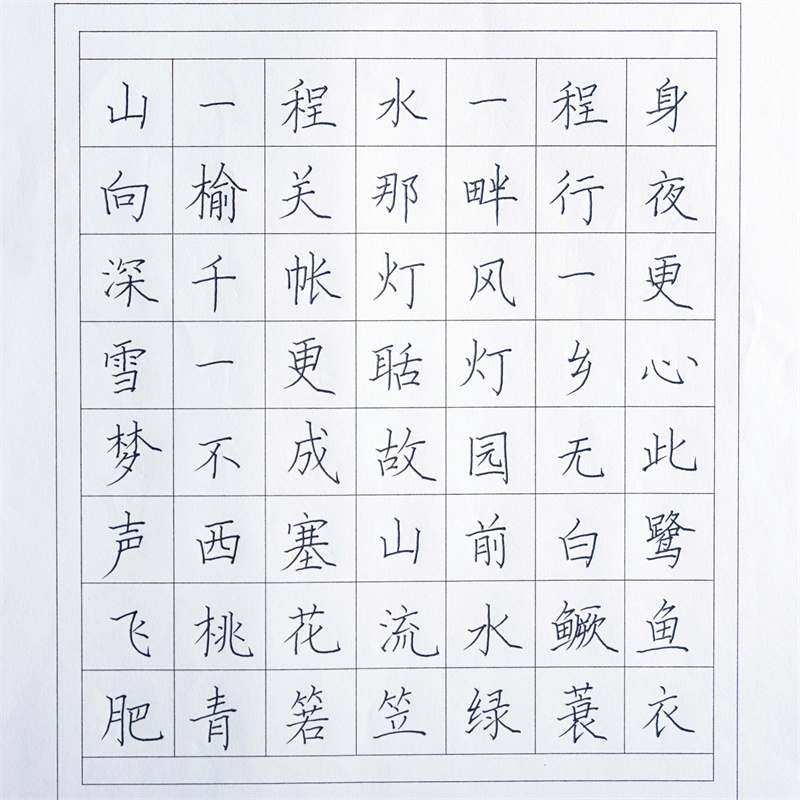 山一程水一程身
向榆关那畔行夜
深千帐灯风一更
雪一更聒灯乡心
梦不成故园无此
声西塞山前白鹭
飞桃花流水鳜鱼
肥青箬笠绿蓑衣